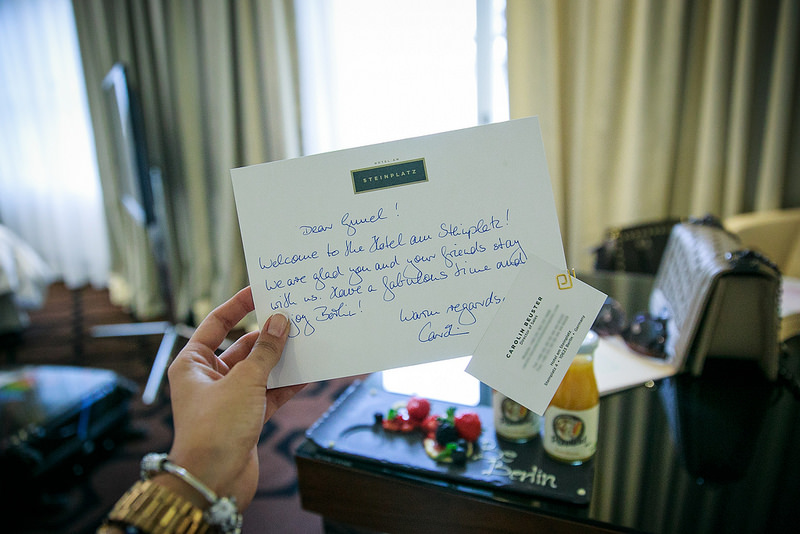 HOTEL AM
STEINPLATZ
Dear Gunel!
Welcome to the Hotel am Steinplatz!
We are glad you and your friends stay
with us. Have a fabulous time and
enjoy Berlin!
Warm regards,
CAROLIN BEUSTER
Director of Sales
Hotel am Steinplatz
Steinplatz 4 • 10623 Berlin • Germany
Berlin